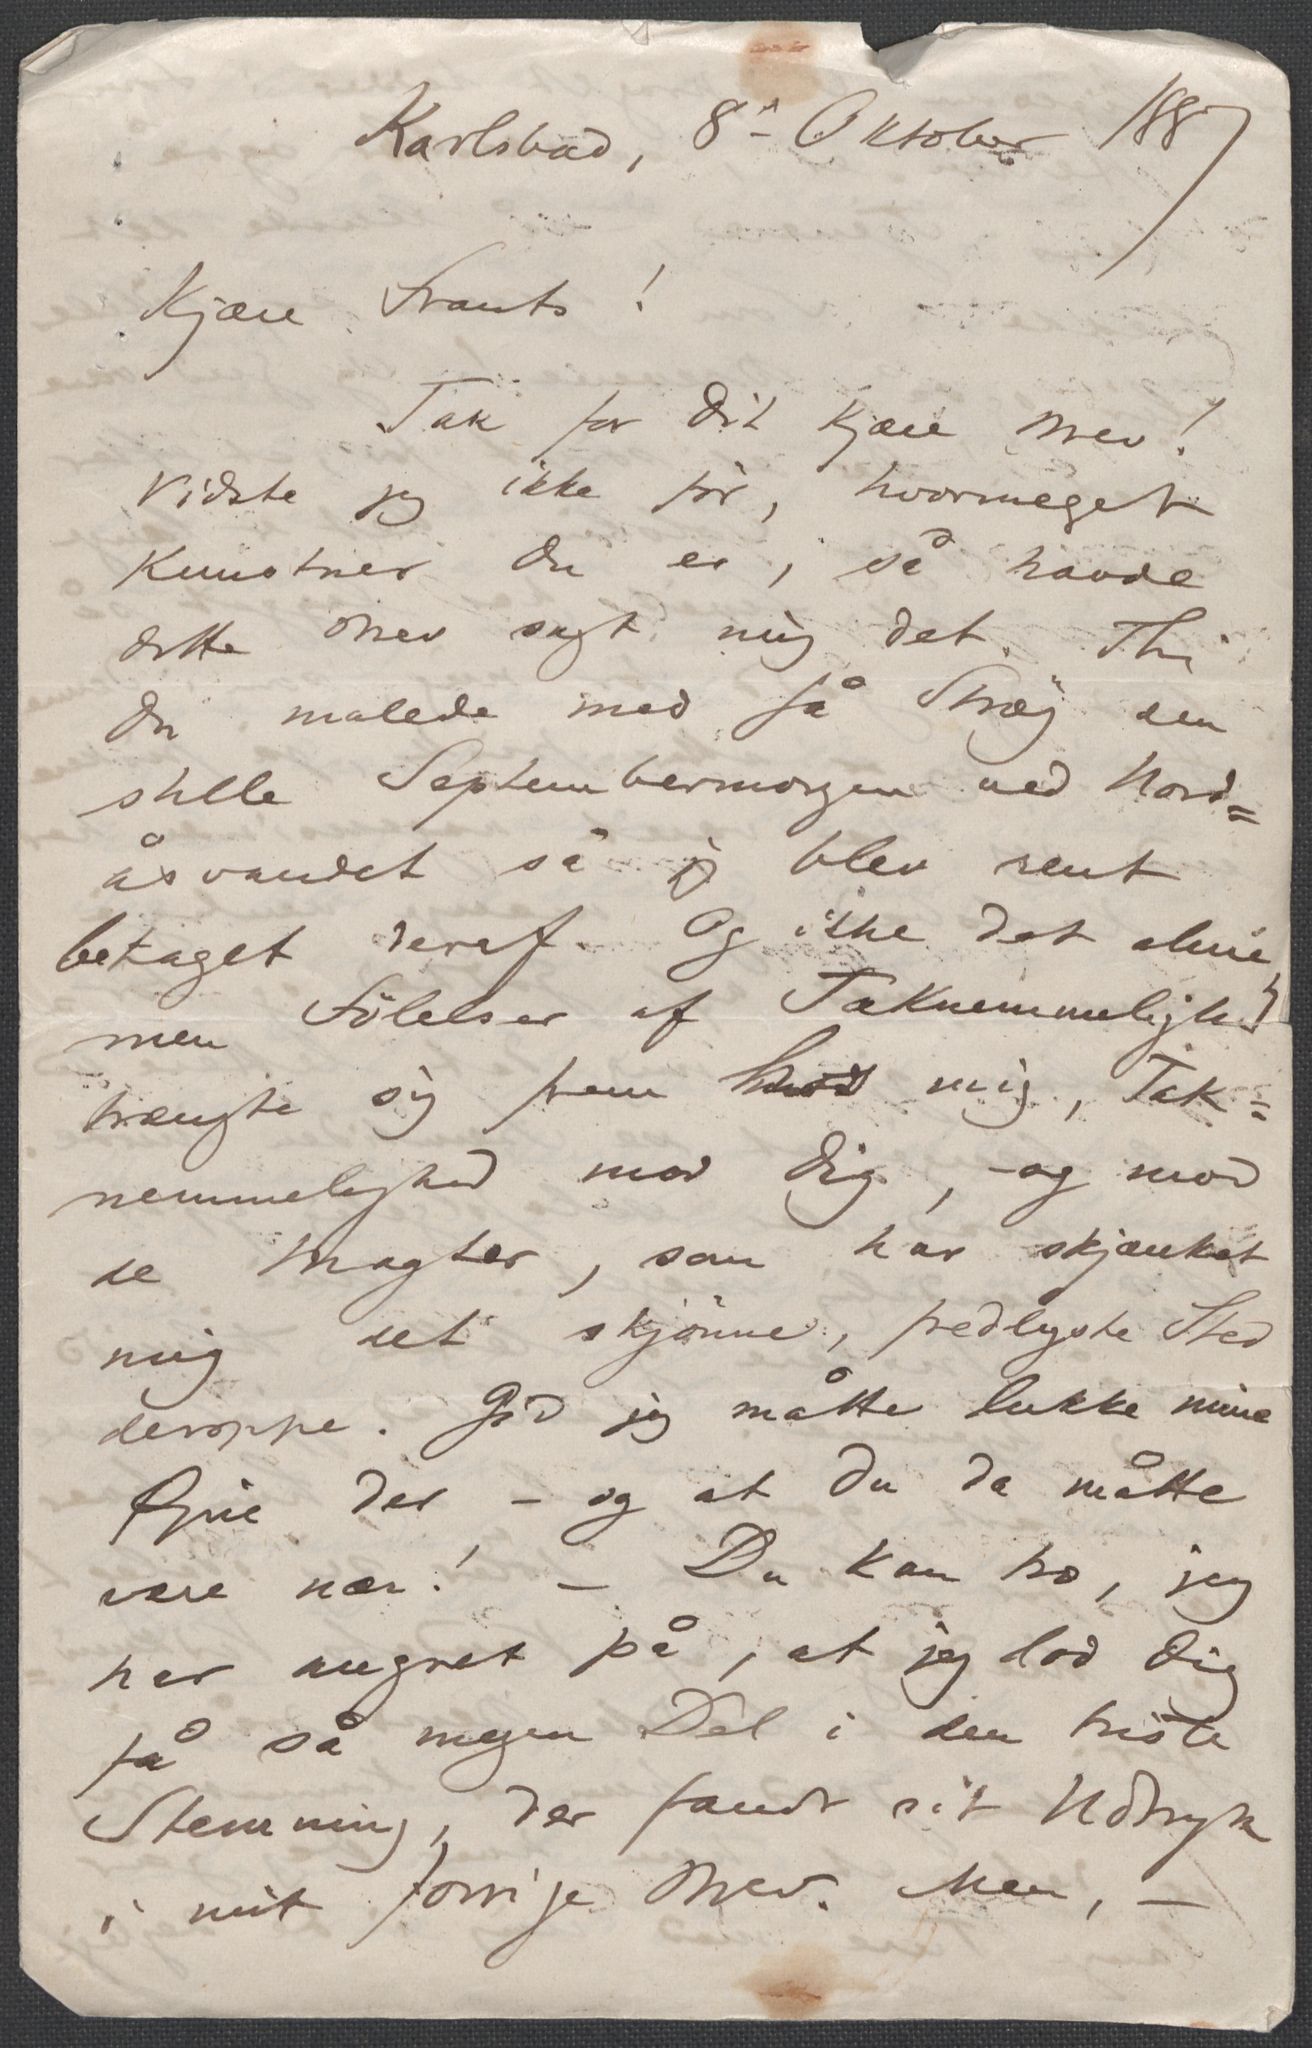 Karlsbad, 8de Oktober 1887
Kjære Frants!
Tak for dit kjære Brev!
Vidste jeg ikke før, hvormeget
Kunstner du er, så havde
dette Brev sagt mig det. Thi
du malede med få Strøg den
stille Septembermorgen ved Nord=
åsvandet så jeg blev rent
betaget deraf. Og ikke det alene,
men Følelser af Taknemmelighed
trængte sig frem hos mig, Tak=
nemmelighed mod dig, – og mod
de Magter, som har skjænket
mig det skjønne, fredlyste Sted
deroppe. Gid jeg måtte lukke mine
Øjne der – og at du da måtte
være nær! – Du kan tro, jeg
har angret på, at jeg lod dig
få så megen Del i den triste
Stemning, der fandt sit Udtryk
i mit forrige Brev. Men, –